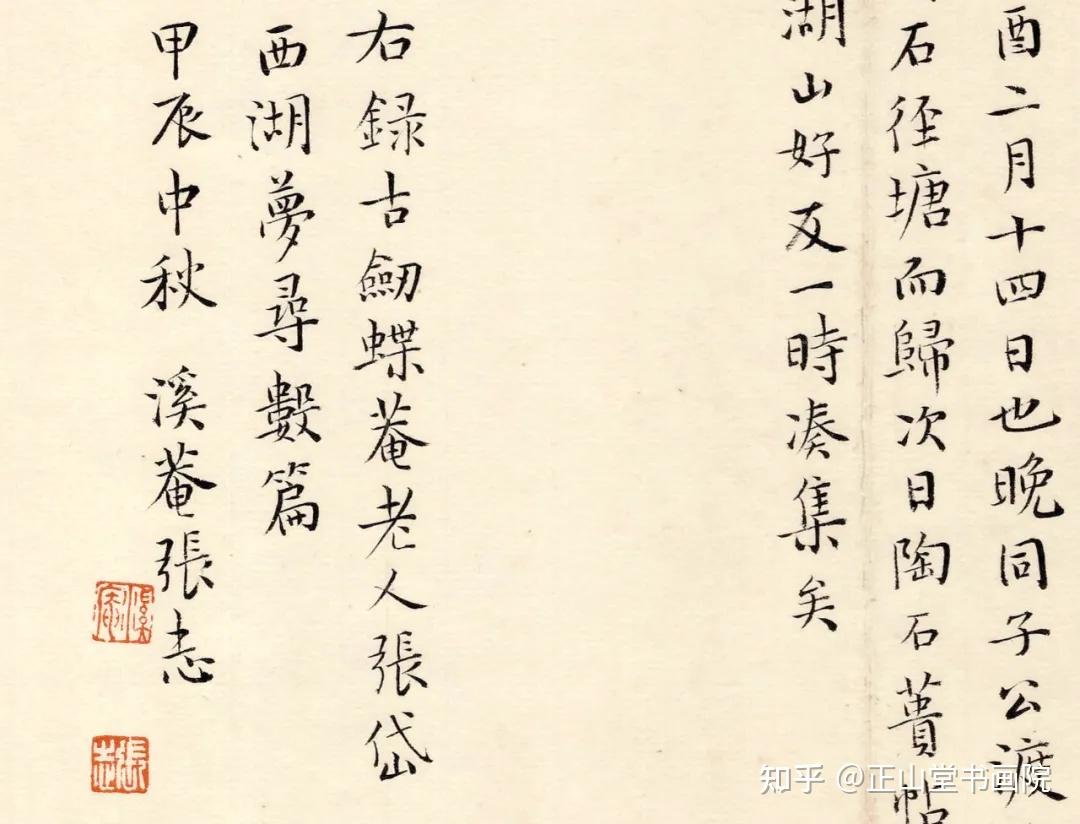 酉二月十四日也晚同子公渡
石徑塘而歸次日陶石蕢帖
湖山好友一時凑集矣
右録古劒蝶菴老人張岱
西湖夢尋數篇
甲辰中秋 溪菴張志
溪菴
張志
知乎 @正山堂书画院